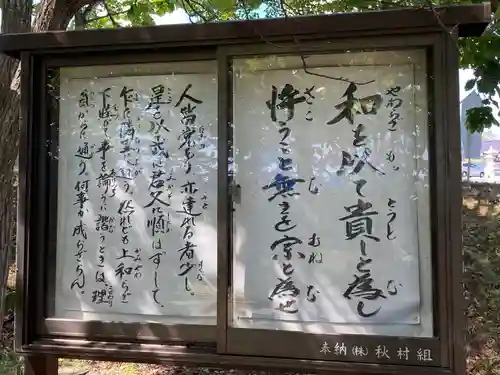 和を以て貴しと為し
忤うこと無きを宗と為せ
人皆党有り 亦達れる者少し。
是を以て或は君父に順はずして、
乍隣里に違う。然れども上和らぎ
下睦びて事を論うに諧うときは 理
自から通う 何事か成らざらん。
奉納 ㈱ 秋村組